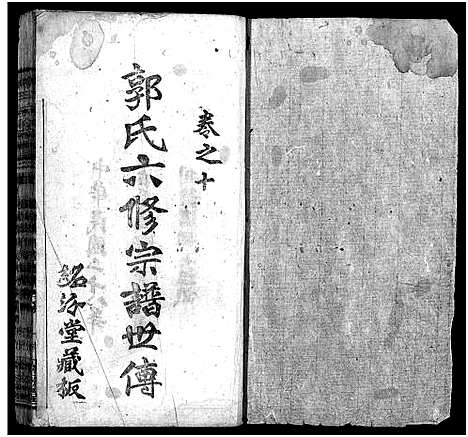 卷之十
郭氏六修宗譜世傳
紹汾堂藏板